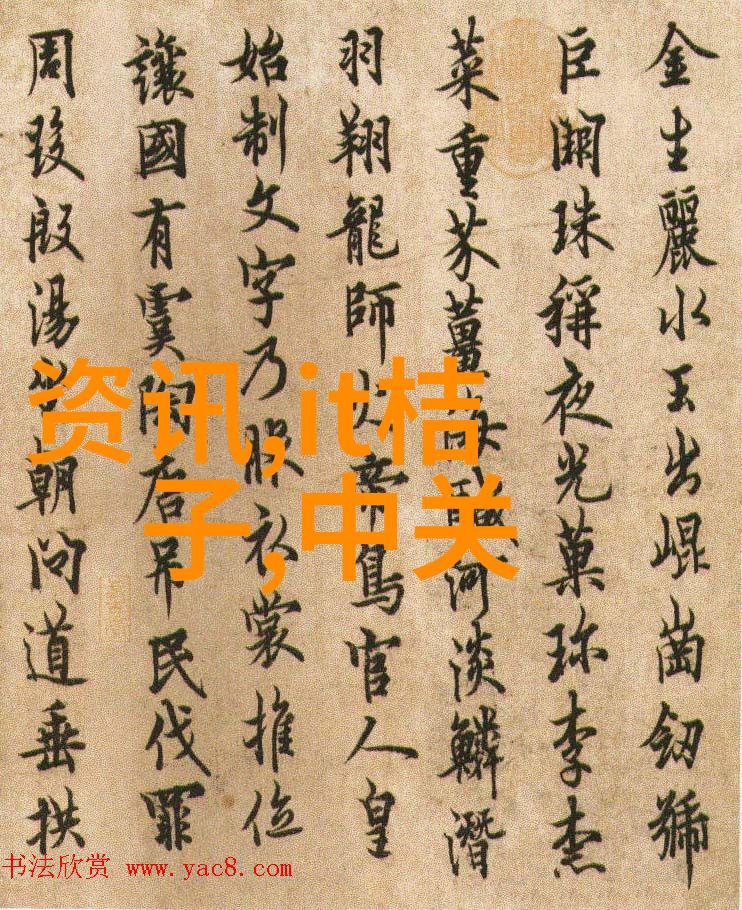 金生麗水玉出崐崗劒號
巨闕珠稱夜光菓珎李柰
菜重芥薑海鹹河淡鱗潛
羽翔龍師火帝鳥官人皇
始制文字乃服衣裳推位
讓國有虞陶唐吊民伐罪
周發殷湯坐朝問道垂拱
资讯,it桔
子,中关
书法欣赏 www.yac8.com